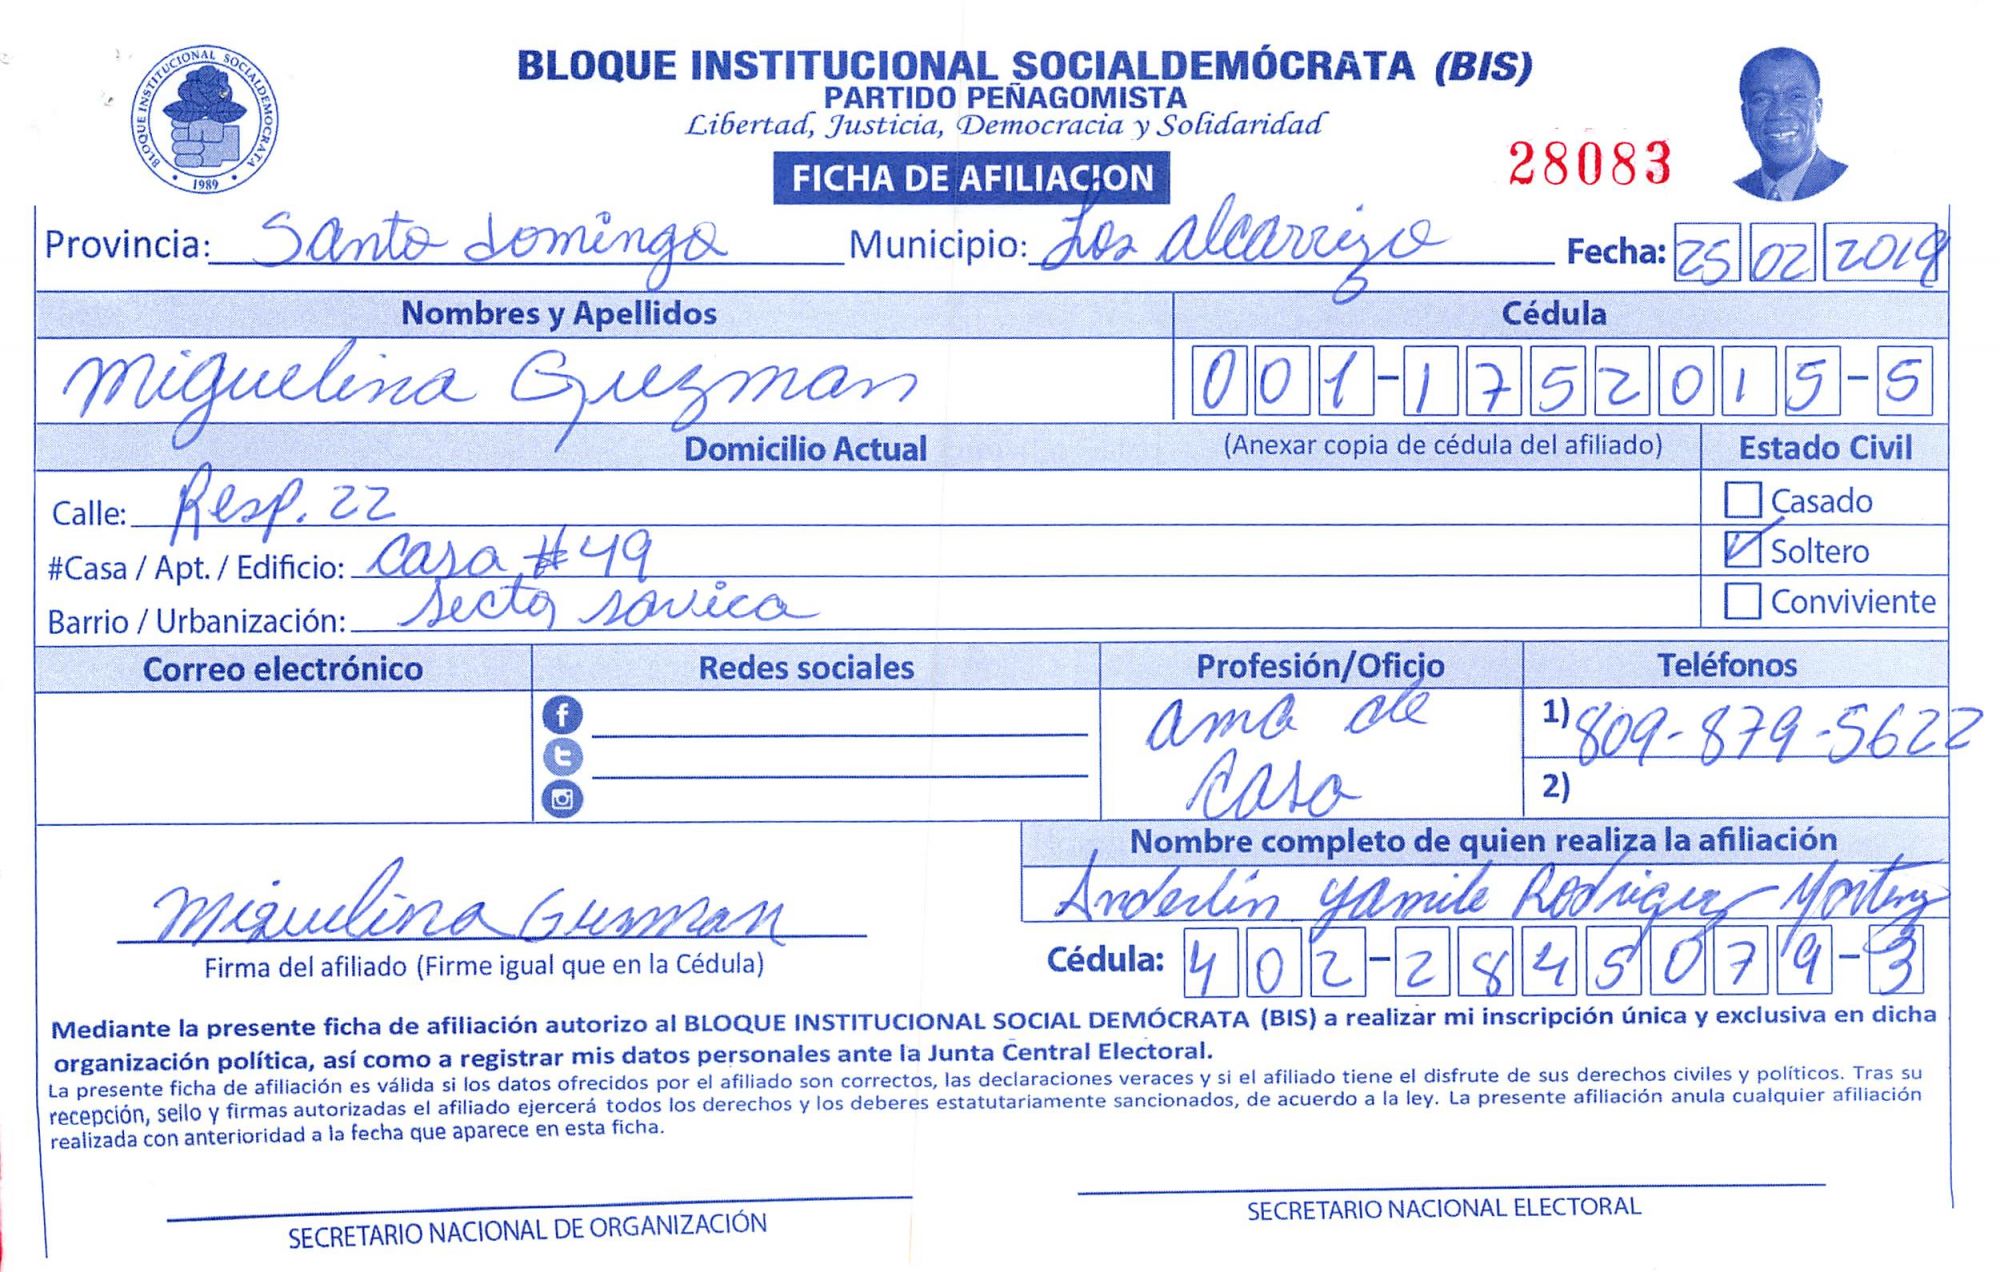 BLOQUE INSTITUCIONAL SOCIALDEMOCRATA
1989
BLOQUE INSTITUCIONAL SOCIALDEMÓCRATA (BIS)
PARTIDO PEÑAGOMISTA
Libertad, Justicia, Democracia y Solidaridad
FICHA DE AFILIACION
28083
Provincia: Santo domingo Municipio: Los alcarrizo Fecha: 25 02 2019
Nombres y Apellidos Cédula
Miguelina Guzman 001-1752015-5
Domicilio Actual (Anexar copia de cédula del afiliado) Estado Civil
Calle: Resp. 22 Casado
#Casa / Apt. / Edificio: Casa #49 Soltero
Barrio / Urbanización: Secto savica Conviviente
Correo electrónico Redes sociales Profesión/Oficio Teléfonos
ama de casa
1) 809-879-5622
2)
Nombre completo de quien realiza la afiliación
Anderlin Yamile Rodriguez
Miguelina Guzman
Firma del afiliado (Firme igual que en la Cédula) Cédula: 402-2845079-3
Mediante la presente ficha de afiliación autorizo al BLOQUE INSTITUCIONAL SOCIAL DEMÓCRATA (BIS) a realizar mi inscripción única y exclusiva en dicha
organización política, así como a registrar mis datos personales ante la Junta Central Electoral.
La presente ficha de afiliación es válida si los datos ofrecidos por el afiliado son correctos, las declaraciones veraces y si el afiliado tiene el disfrute de sus derechos civiles y políticos. Tras su
recepción, sello y firmas autorizadas el afiliado ejercerá todos los derechos y los deberes estatutariamente sancionados, de acuerdo a la ley. La presente afiliación anula cualquier afiliación
realizada con anterioridad a la fecha que aparece en esta ficha.
SECRETARIO NACIONAL DE ORGANIZACIÓN SECRETARIO NACIONAL ELECTORAL